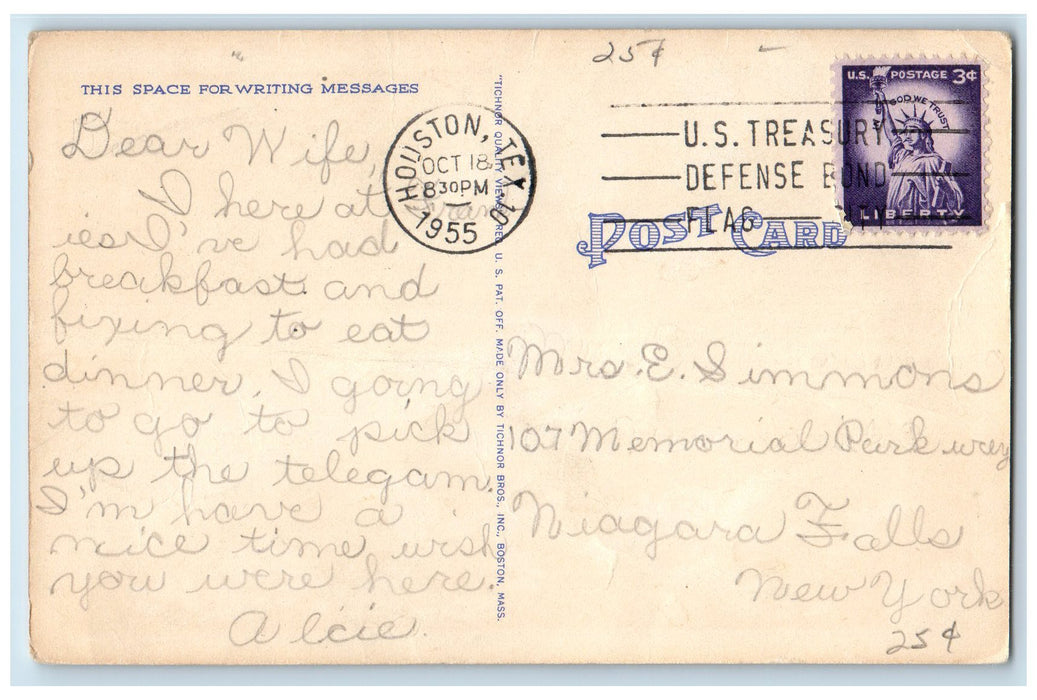 25¢
THIS SPACE FOR WRITING MESSAGES
Dear Wife,
I here at Fran
ies I've had
breakfast and
fixing to eat
dinner. I going
to go to pick
up the telegam.
I'm have a
nice time wish
you were here.
Alcie.
"TICHNOR QUALITY VIEWS," REG. U. S. PAT. OFF. MADE ONLY BY TICHNOR BROS., INC., BOSTON, MASS.
HOUSTON, TEX. 10
OCT 18
830PM
1955
U.S. TREASURY
DEFENSE BOND
FLAG CITY
U.S. POSTAGE 3¢
IN GOD WE TRUST
LIBERTY
POST CARD
Mrs. E. Simmons
107 Memorial Parkway
Niagara Falls
New York
25¢